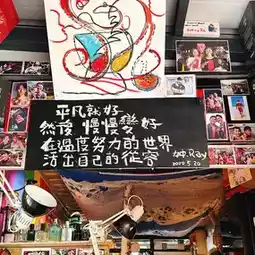 平凡就好
然後 慢慢變好
在過度努力的世界
活出自己的從容
Ray